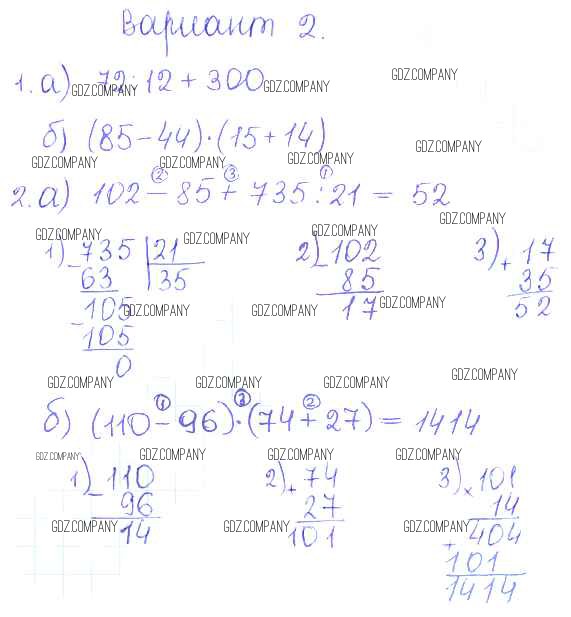 Вариант 2.
1. а) 72 : 12 + 300
GDZ.COMPANY GDZ.COMPANY GDZ.COMPANY
б) (85 - 44) · (15 + 14)
GDZ.COMPANY GDZ.COMPANY GDZ.COMPANY GDZ.COMPANY
② ③ ①
2. а) 102 - 85 + 735 : 21 = 52
GDZ.COMPANY GDZ.COMPANY GDZ.COMPANY GDZ.COMPANY
1) - 735 | 21 2) - 102 3) + 17
63 35 85 35
105 17 52
GDZ.COMPANY GDZ.COMPANY GDZ.COMPANY
- 105
0
GDZ.COMPANY GDZ.COMPANY GDZ.COMPANY GDZ.COMPANY
① ③ ②
б) (110 - 96) · (74 + 27) = 1414
GDZ.COMPANY GDZ.COMPANY GDZ.COMPANY GDZ.COMPANY
1) - 110 2) + 74 3) × 101
96 27 14
14 101 + 404
GDZ.COMPANY GDZ.COMPANY GDZ.COMPANY
101
1414